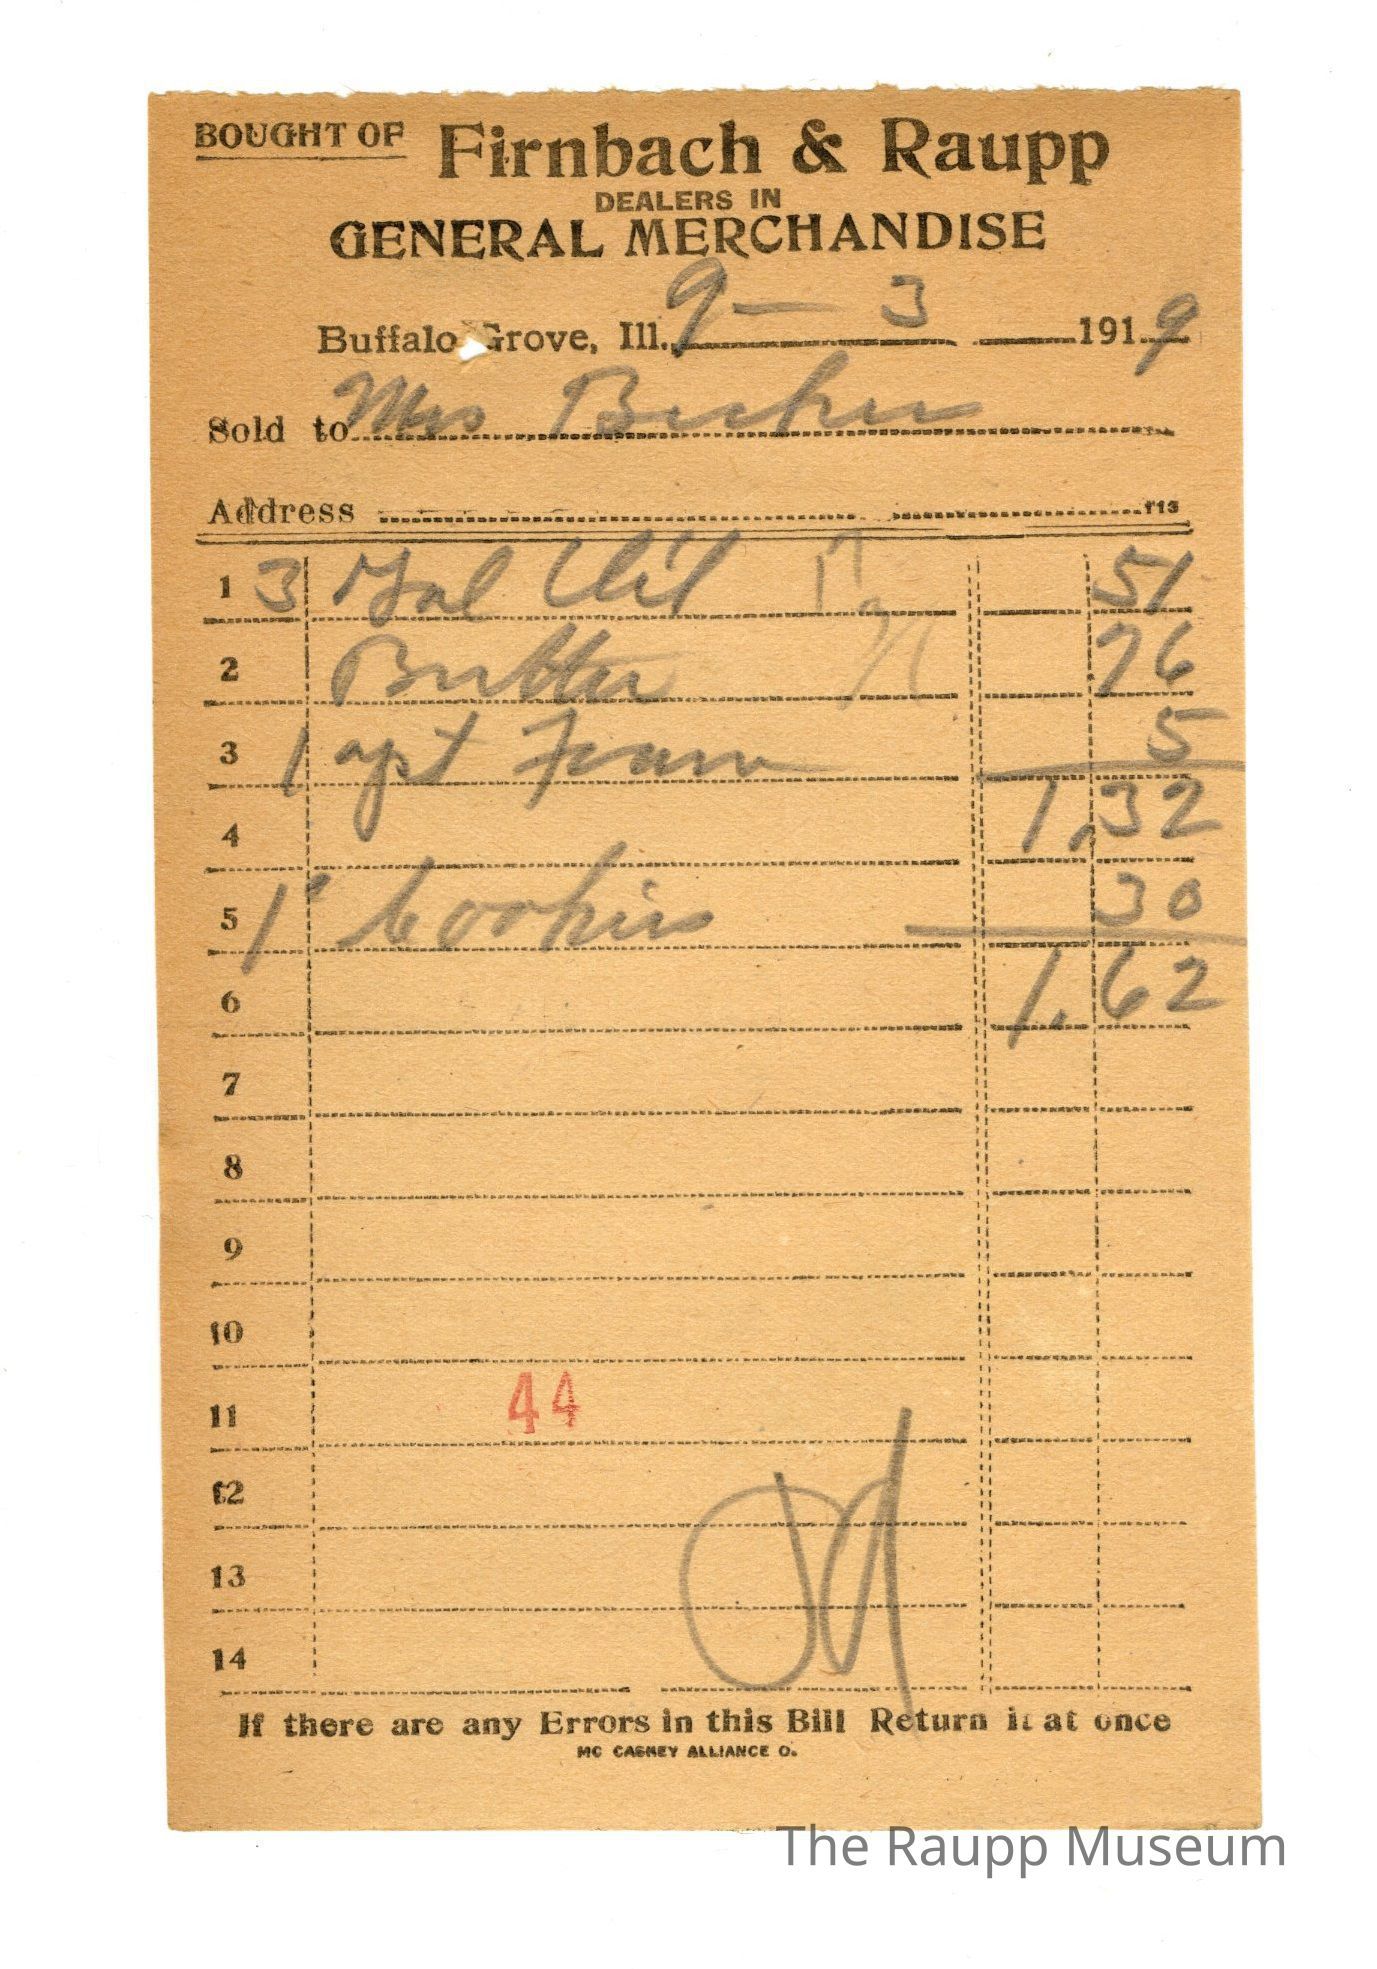 BOUGHT OF Firnbach & Raupp
DEALERS IN
GENERAL MERCHANDISE
Buffalo Grove, Ill. 9 — 3 1919
Sold to Mrs
Address 113
1 3 Gal Oil 17 51
2 Butter 76
3 1 5
4 1.32
5 1 Cookies 30
6 1.62
7
8
9
10
11 44
12
13
14
If there are any Errors in this Bill Return it at once
MC CASKEY ALLIANCE O.
The Raupp Museum